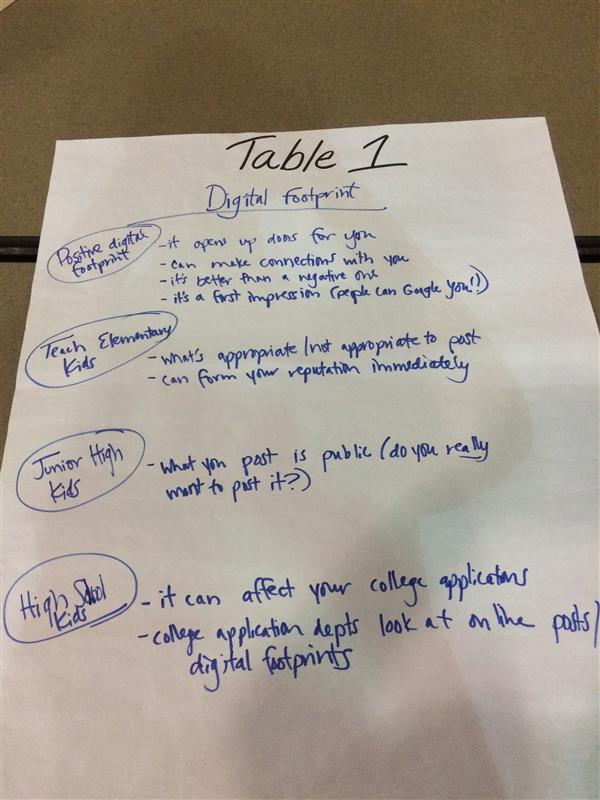 Table 1
Digital Footprint
Positive digital
footprint
- it opens up doors for you
- can make connections with you
- it's better than a negative one
- it's a first impression (people can Google you!!)
Teach Elementary
Kids
- what's appropriate/not appropriate to post
- can form your reputation immediately
Junior High
Kids
- What you post is public (do you really
want to post it?)
High School
Kids
- it can affect your college applications
- college application depts look at online posts/
digital footprints